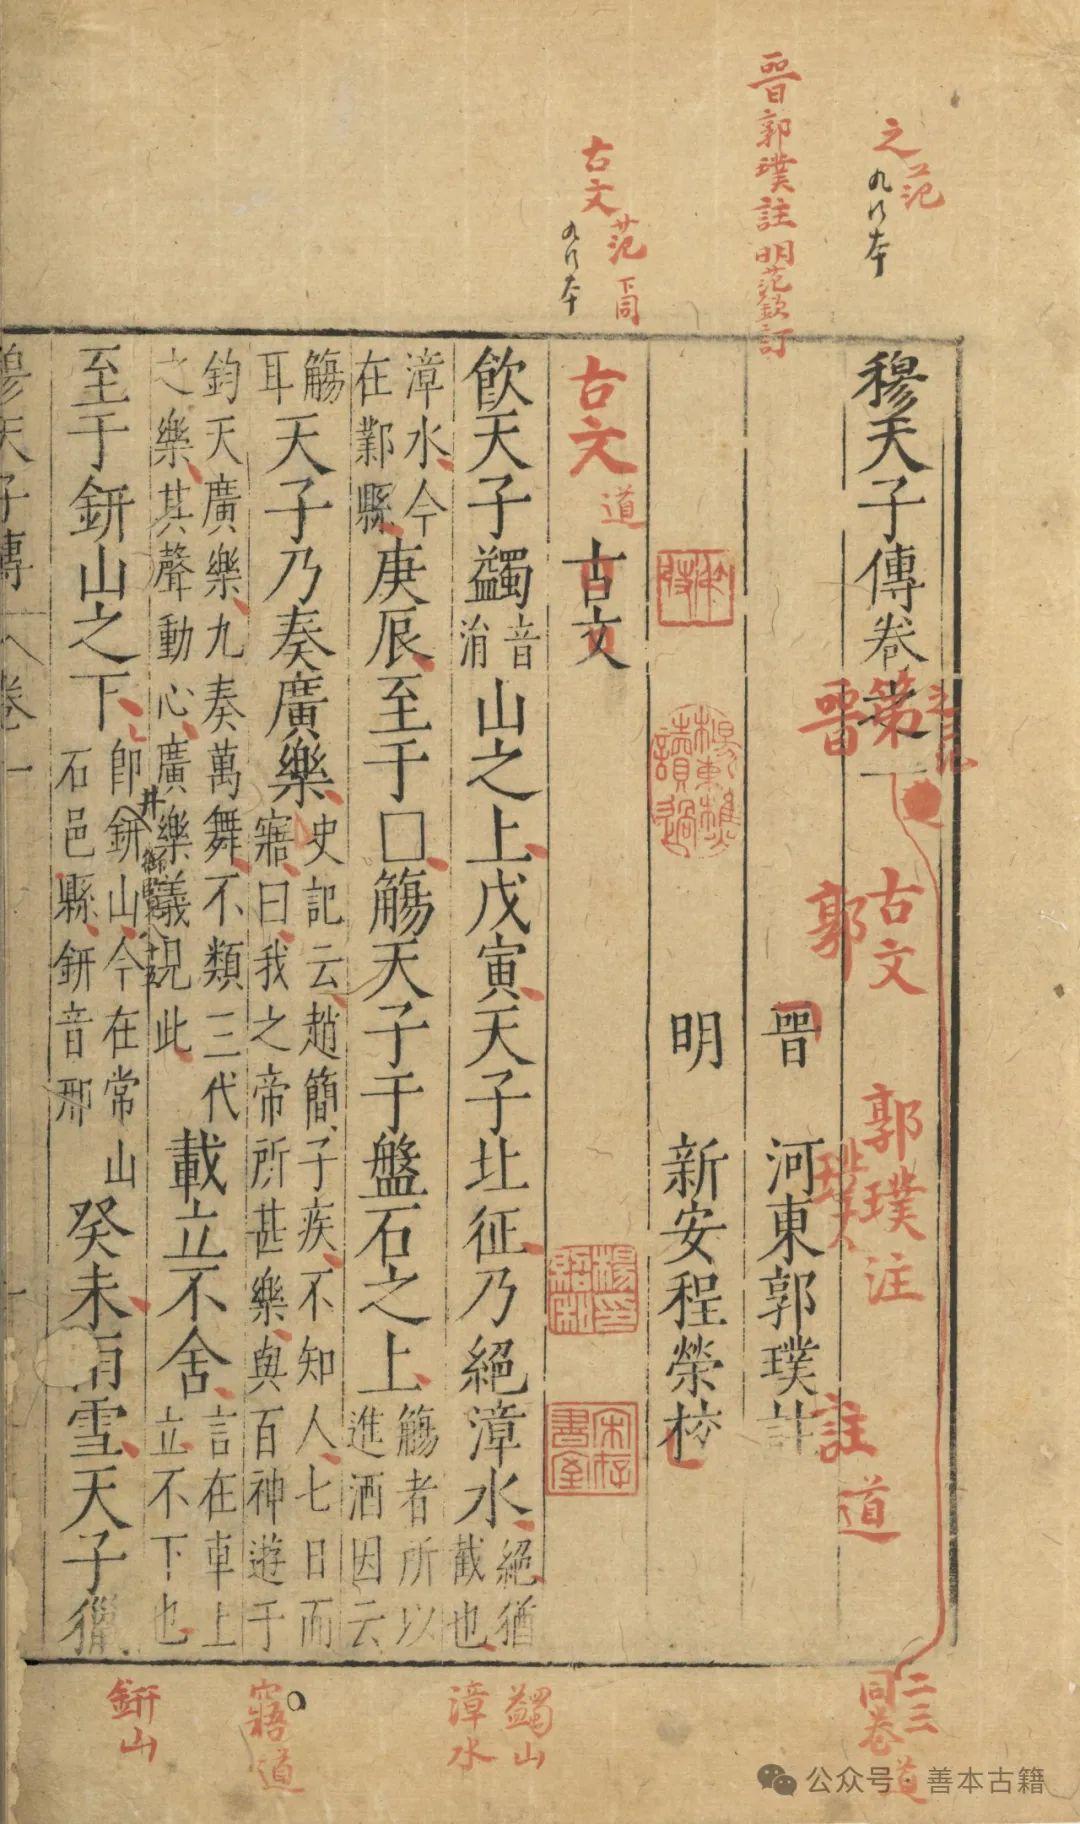 之 范
九行本
晋郭璞註 明范欽訂
古文 范 下同
九行本
穆天子傳卷之一
第
晋
古文
郭
郭璞注
璞
註
道
晉 河東郭璞註
明 新安程榮校
古文 道
古文
楊東樵讀過
楊印紹和
宋存書室
飲天子蠲音涓山之上戊寅天子北征乃絕漳水絕猶截也
漳水今在鄴縣庚辰至于□觴天子于盤石之上觴者所以進酒因云
觴耳天子乃奏廣樂史記云趙簡子疾不知人七日而寤曰我之帝所甚樂與百神遊于
鈞天廣樂九奏萬舞不類三代之樂其聲動心廣樂義見此載立不舍言在車上立不下也
至于鈃山之下即鈃山今在常山石邑縣鈃音邢癸未雨雪天子獵
井
穆天子傳 卷一 一
二三同卷 道
蠲山
漳水
寤 道
鈃山
公众号·善本古籍